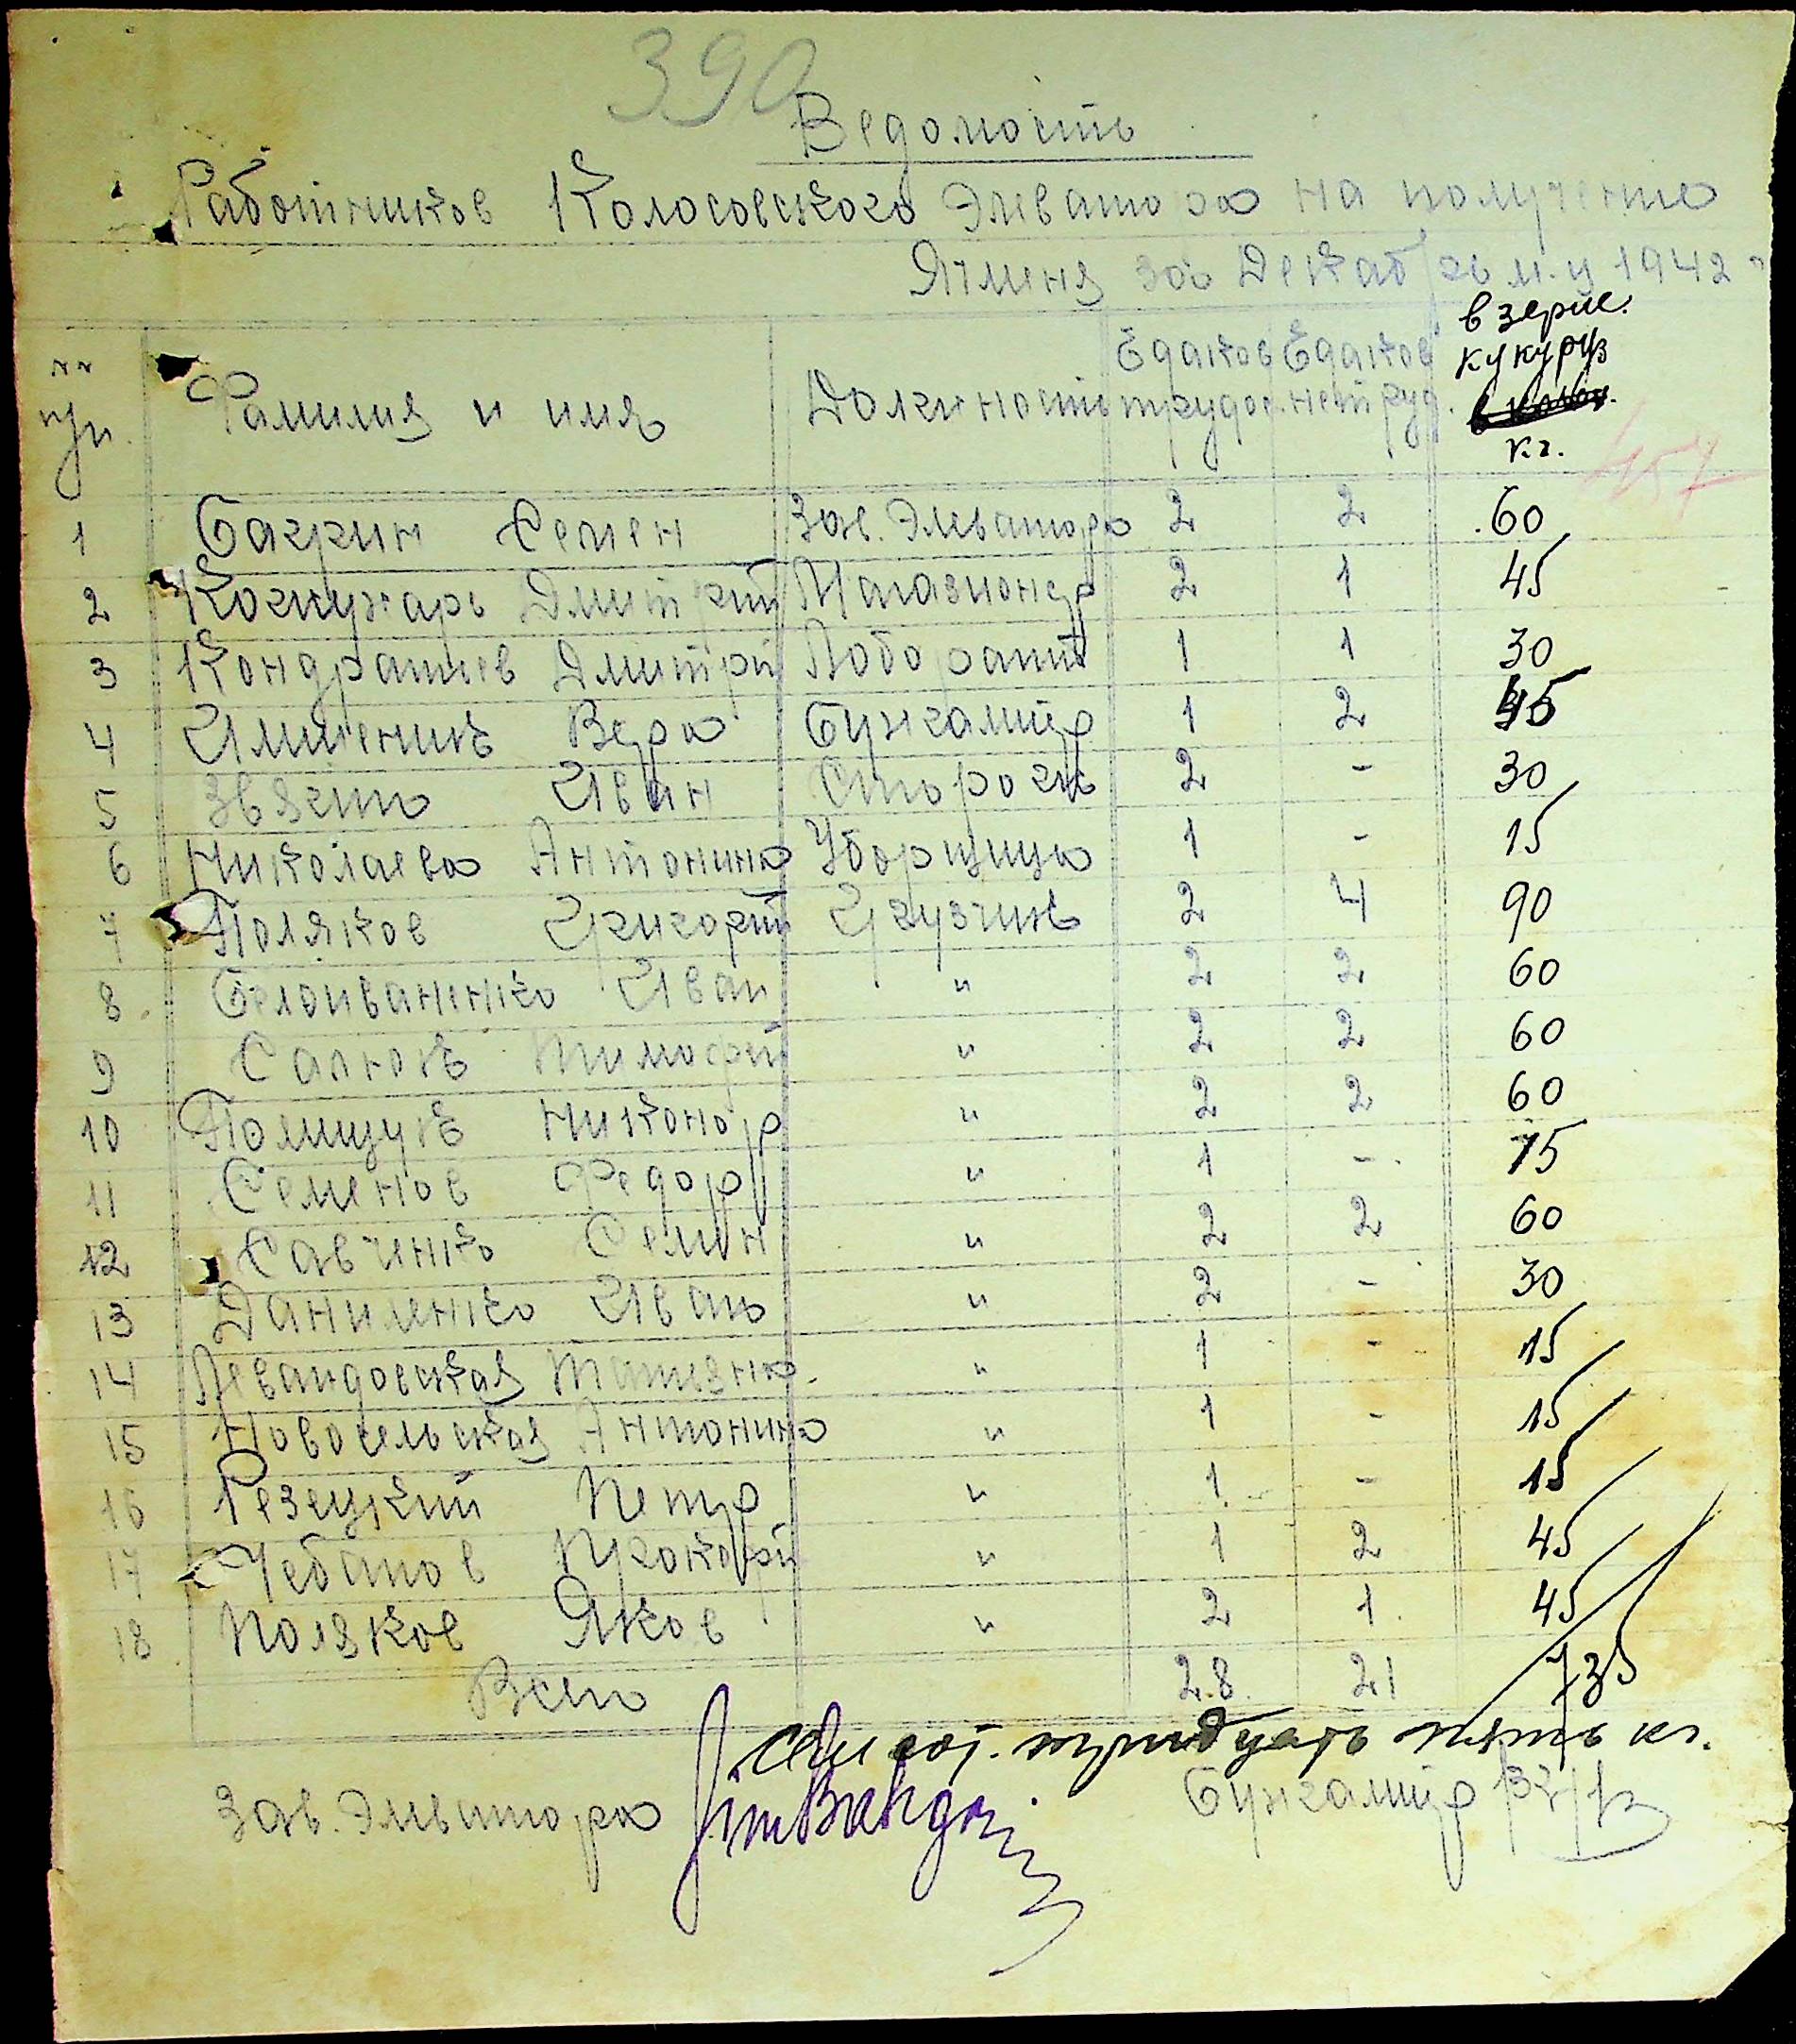 390
Ведомость
Работников Колосовского Элеватора на получение
Ячменя за Декабрь м-ц 1942 г
№№ п/п. Фамилия и имя Должность Едаков трудос. Едаков нетруд. в зерне. кукуруз кг.
457
1 Багрин Семен Зав. Элеватора 2 2 60
2 Кожухарь Дмитрий Магазионер 2 1 45
3 Кондратьев Дмитрий Лаборант 1 1 30
4 Вера Бухгалтер 1 2 45
5 Иван Сторож 2 - 30
6 Николаева Антонина Уборщица 1 - 15
7 Поляков Григорий Грузчик 2 4 90
8 Белоиваненко Иван " 2 2 60
9 Салюк Тимофей " 2 2 60
10 Полищук Никонор " 2 2 60
11 Семенов Федор " 1 - 15
12 Савченко Семен " 2 2 60
13 Даниленко Иван " 2 - 30
14 Левандовская Татьяна " 1 - 15
15 Новосельская Антонина " 1 - 15
16 Резецкий Петр " 1 - 15
17 Чебанов Прокофий " 1 2 45
18 Поляков Яков " 2 1 45
Всего 28 21 735
семсот. тридцать пять кг.
Зав. Элеватора Бухгалтер